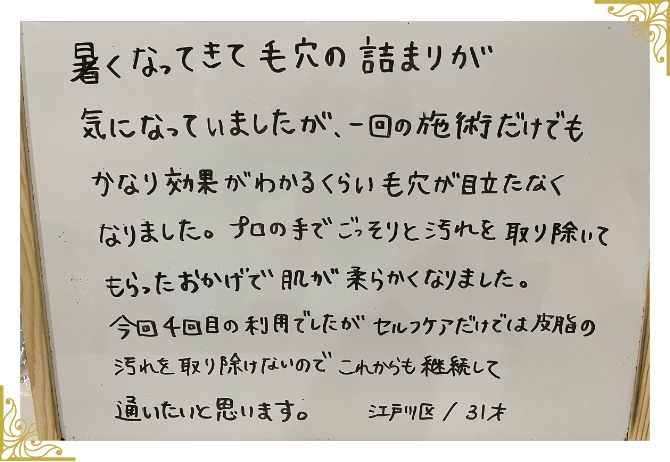 暑くなってきて毛穴の詰まりが
気になっていましたが、一回の施術だけでも
かなり効果がわかるくらい毛穴が目立たなく
なりました。プロの手でごっそりと汚れを取り除いて
もらったおかげで肌が柔らかくなりました。
今回4回目の利用でしたがセルフケアだけでは皮脂の
汚れを取り除けないのでこれからも継続して
通いたいと思います。 江戸川区/31才